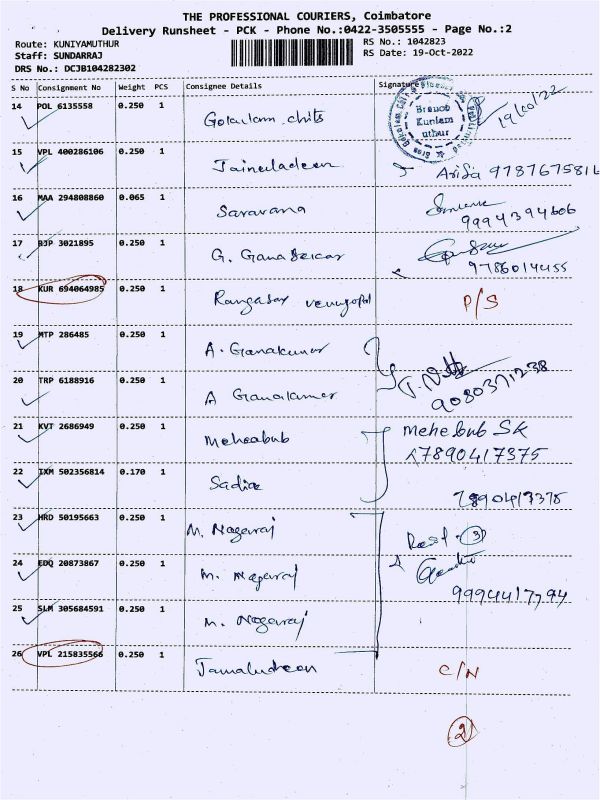 THE PROFESSIONAL COURIERS, Coimbatore
Delivery Runsheet - PCK - Phone No.:0422-3505555 - Page No.:2
Route: KUNIYAMUTHUR
RS No.: 1042823
Staff: SUNDARRAJ
RS Date: 19-Oct-2022
DRS No.: DCJB104282302
S No Consignment No Weight PCS Consignee Details Signature
14 POL 6135558 0.250 1 Gokulam chits
Branch
Kuniam
uthur
19/10/22
15 VPL 400286106 0.250 1 Jainuladeen
9787675816
16 MAA 294808860 0.065 1 Saravana
9994394606
17 BJP 3021895 0.250 1 G. Gana Sekar
9786014455
18 KUR 694064985 0.250 1 P/S
19 MTP 286485 0.250 1 A. Ganakumar
20 TRP 6188916 0.250 1 A Ganakumar
9080371238
21 KVT 2686949 0.250 1 Mehaabub
Mehebub SK
7890417375
22 IXM 502356814 0.170 1 Sadia
7890417375
23 HRD 50195663 0.250 1 M. Nagaraj
3
24 EDQ 20873867 0.250 1 M. Nagaraj
9994417794
25 SLM 305684591 0.250 1 M. Nagaraj
26 VPL 215835566 0.250 1 Jamaludeen C/N
2